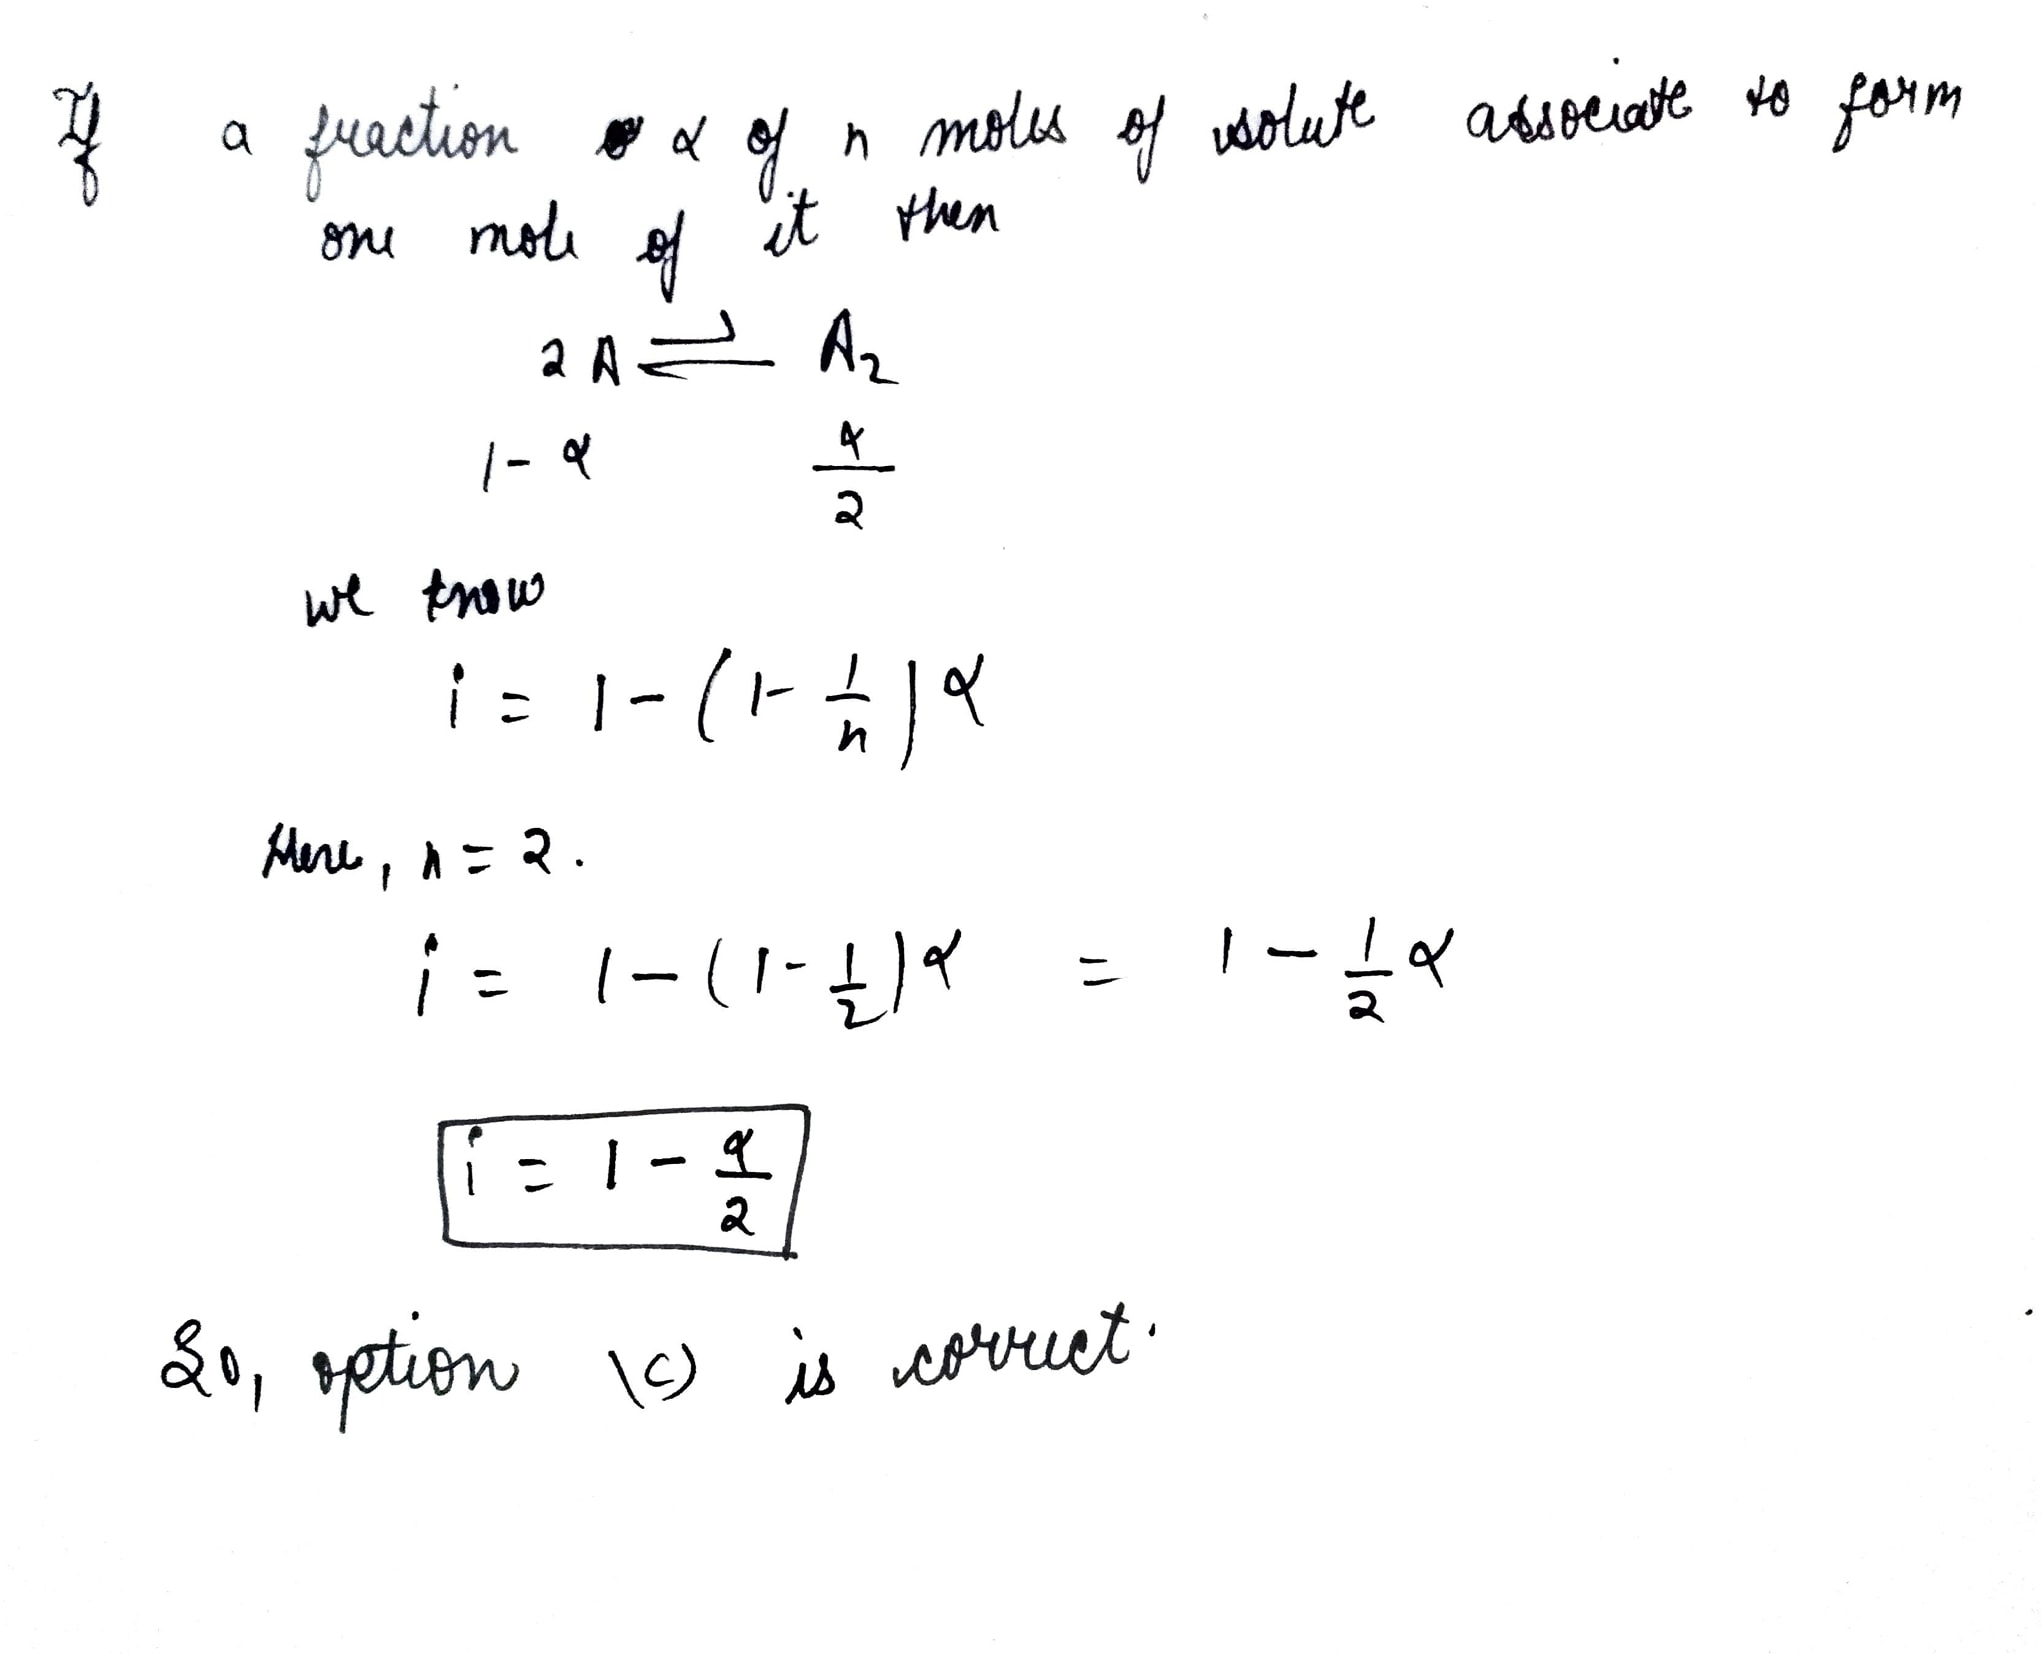 If a fraction α of n moles of solute associate to form
one mole of it then
2A ⇌ A₂
1-α α/2
we know
i = 1-(1-1/n)α
Here, n=2.
i = 1-(1-1/2)α = 1-1/2α
i = 1-α/2
So, option (c) is correct.